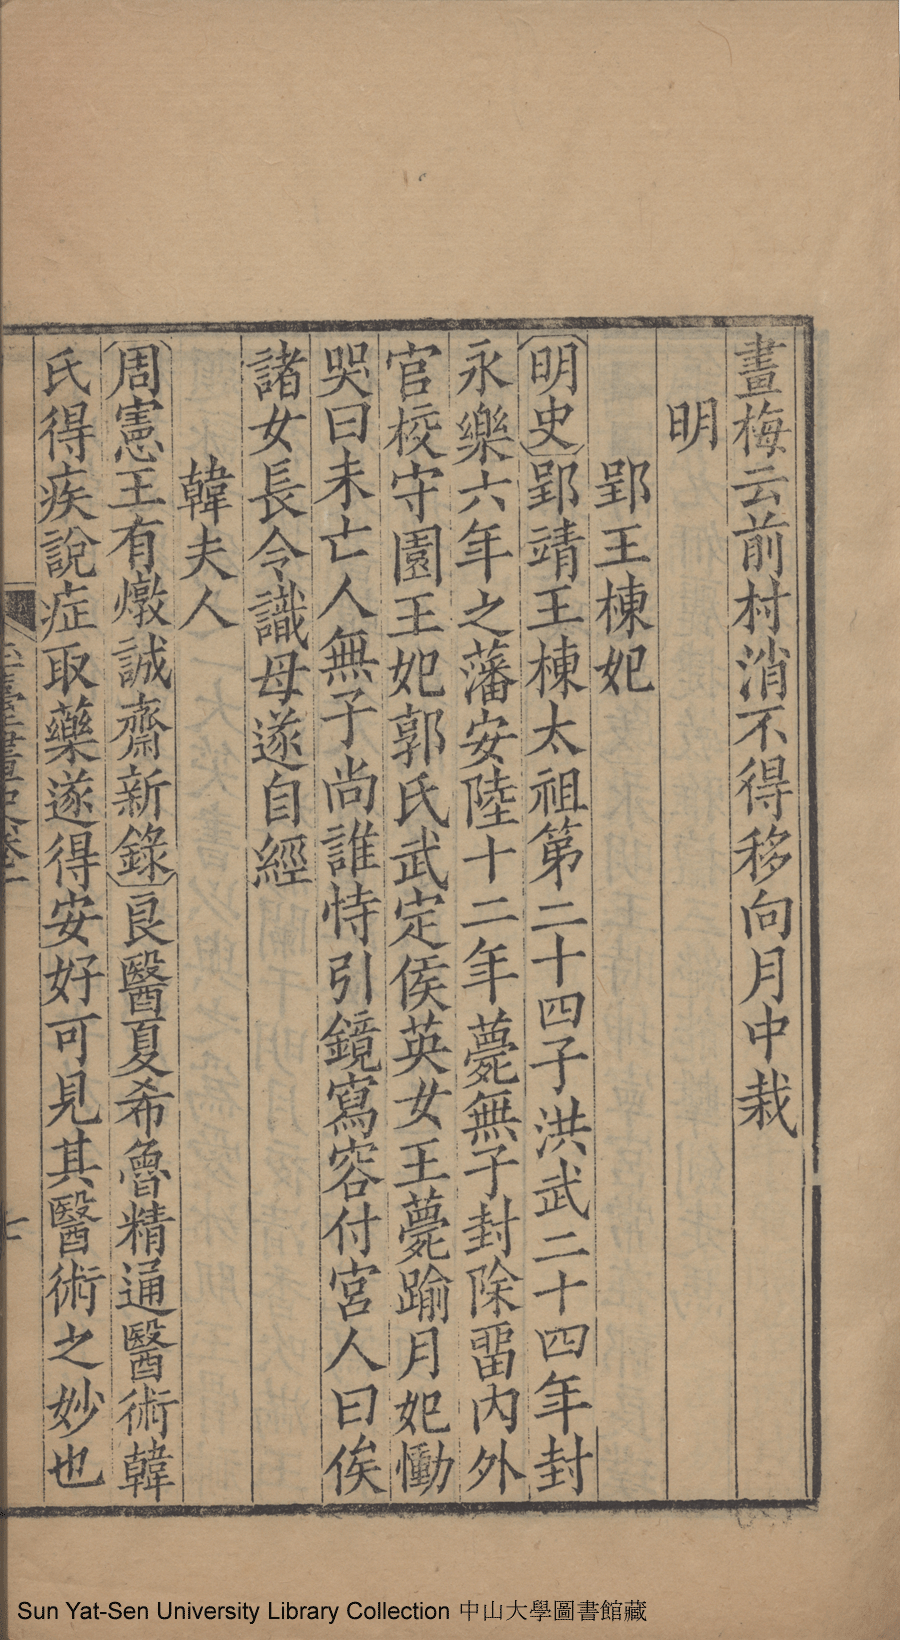 畫梅云前村消不得移向月中栽
明
郢王棟妃
明史郢靖王棟太祖第二十四子洪武二十四年封
永樂六年之藩安陸十二年薨無子封除畱內外
官校守園王妃郭氏武定侯英女王薨踰月妃慟
哭曰未亡人無子尚誰恃引鏡寫容付宮人曰俟
諸女長令識母遂自經
韓夫人
周憲王有燉誠齋新錄良醫夏希魯精通醫術韓
氏得疾說症取藥遂得安好可見其醫術之妙也
七
Sun Yat-Sen University Library Collection 中山大學圖書館藏